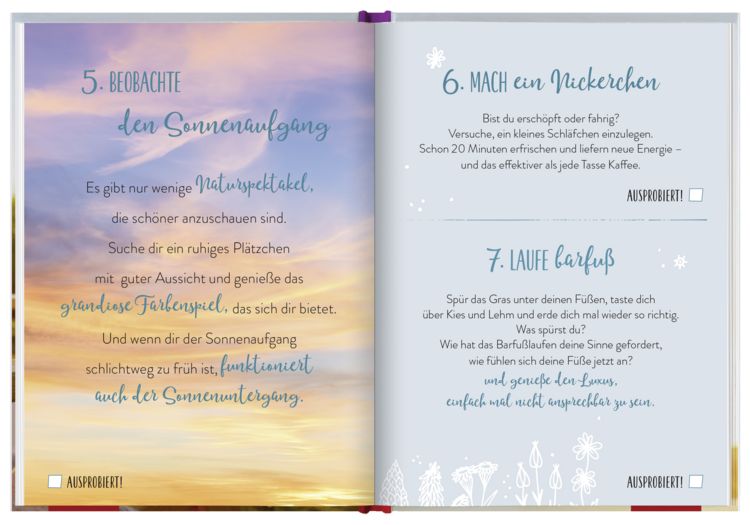 5. BEOBACHTE
den Sonnenaufgang
Es gibt nur wenige Naturspektakel,
die schöner anzuschauen sind.
Suche dir ein ruhiges Plätzchen
mit guter Aussicht und genieße das
grandiose Farbenspiel, das sich dir bietet.
Und wenn dir der Sonnenaufgang
schlichtweg zu früh ist, funktioniert
auch der Sonnenuntergang.
AUSPROBIERT!
6. MACH ein Nickerchen
Bist du erschöpft oder fahrig?
Versuche, ein kleines Schläfchen einzulegen.
Schon 20 Minuten erfrischen und liefern neue Energie –
und das effektiver als jede Tasse Kaffee.
AUSPROBIERT!
7. LAUFE barfuß
Spür das Gras unter deinen Füßen, taste dich
über Kies und Lehm und erde dich mal wieder so richtig.
Was spürst du?
Wie hat das Barfußlaufen deine Sinne gefordert,
wie fühlen sich deine Füße jetzt an?
und genieße den Luxus,
einfach mal nicht ansprechbar zu sein.
AUSPROBIERT!